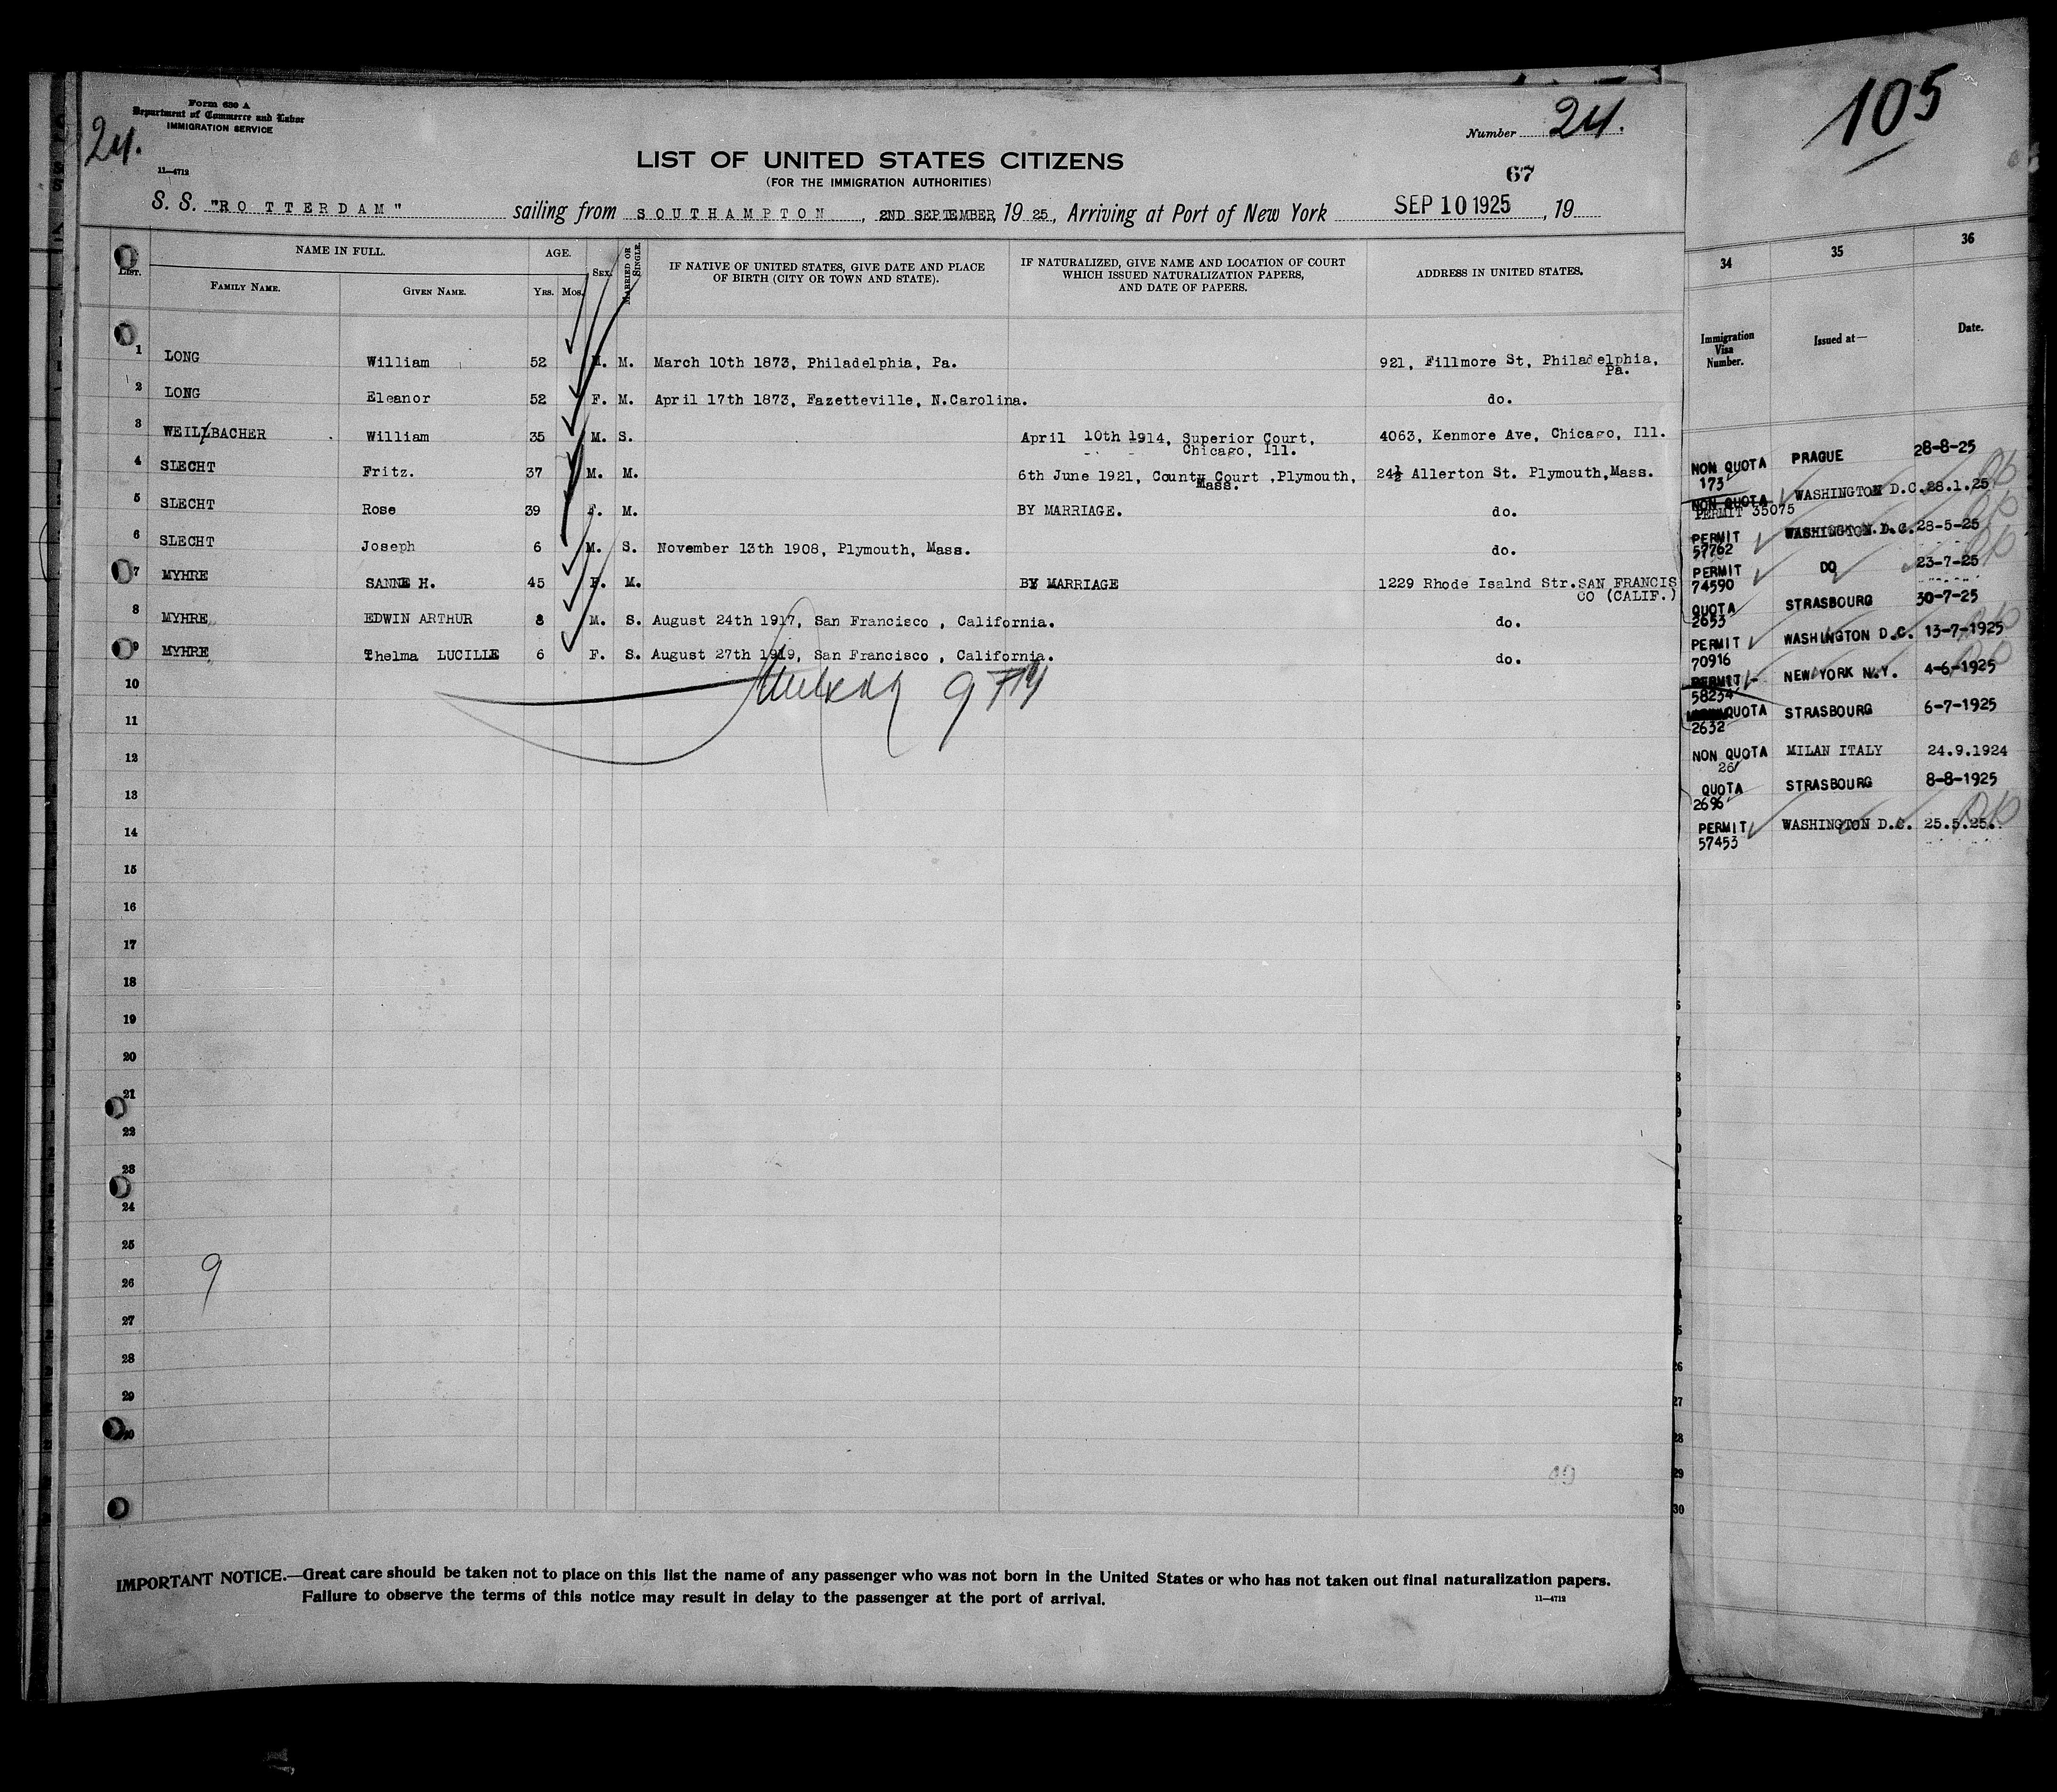 Form 630 A
Department of Commerce and Labor
IMMIGRATION SERVICE
24.
11—4712
Number 24.
67
LIST OF UNITED STATES CITIZENS
(FOR THE IMMIGRATION AUTHORITIES)
S. S. "RO TTERDAM" sailing from SOUTHAMPTON, 2ND SEPTEMBER, 19 25., Arriving at Port of New York SEP 10 1925, 19
LIST.
NAME IN FULL.
FAMILY NAME.
GIVEN NAME.
AGE.
YRS. MOS.
SEX.
MARRIED OR SINGLE.
IF NATIVE OF UNITED STATES, GIVE DATE AND PLACE
OF BIRTH (CITY OR TOWN AND STATE).
IF NATURALIZED, GIVE NAME AND LOCATION OF COURT
WHICH ISSUED NATURALIZATION PAPERS,
AND DATE OF PAPERS.
ADDRESS IN UNITED STATES.
1 LONG William 52 M. M. March 10th 1873, Philadelphia, Pa. 921, Fillmore St, Philadelphia,
Pa.
2 LONG Eleanor 52 F. M. April 17th 1873, Fazetteville, N.Carolina. do.
3 WEILLBACHER William 35 M. S. April 10th 1914, Superior Court, 4063, Kenmore Ave, Chicago, Ill.
Chicago, Ill.
4 SLECHT Fritz. 37 M. M. 6th June 1921, County Court ,Plymouth, 24½ Allerton St. Plymouth,Mass.
Mass.
5 SLECHT Rose 39 F. M. BY MARRIAGE. do.
6 SLECHT Joseph 6 M. S. November 13th 1908, Plymouth, Mass. do.
7 MYHRE SANNE H. 45 F. M. BY MARRIAGE 1229 Rhode Isalnd Str.SAN FRANCIS
CO (CALIF.)
8 MYHRE EDWIN ARTHUR 8 M. S. August 24th 1917, San Francisco , California. do.
9 MYHRE Thelma LUCILLE 6 F. S. August 27th 1919, San Francisco , California. do.
10
11
12
13
14
15
16
17
18
19
20
21
22
23
24
25
26
27
28
29
30
9
IMPORTANT NOTICE.—Great care should be taken not to place on this list the name of any passenger who was not born in the United States or who has not taken out final naturalization papers.
Failure to observe the terms of this notice may result in delay to the passenger at the port of arrival.
11—4712
105
34 35 36
Immigration
Visa
Number.
Issued at—
Date.
NON QUOTA PRAGUE 28-8-25
173
NON QUOTA WASHINGTON D.C. 28.1.25
PERMIT 35075
PERMIT WASHINGTON.D.C. 28-5-25
57762
PERMIT DO 23-7-25
74590
QUOTA STRASBOURG 30-7-25
2653
PERMIT WASHINGTON D.C. 13-7-1925
70916
PERMIT NEW YORK N.Y. 4-6-1925
58234
QUOTA STRASBOURG 6-7-1925
2632
NON QUOTA MILAN ITALY 24.9.1924
26
QUOTA STRASBOURG 8-8-1925
2696
PERMIT WASHINGTON D.C. 25.5.25.
57453
26
27
28
29
30